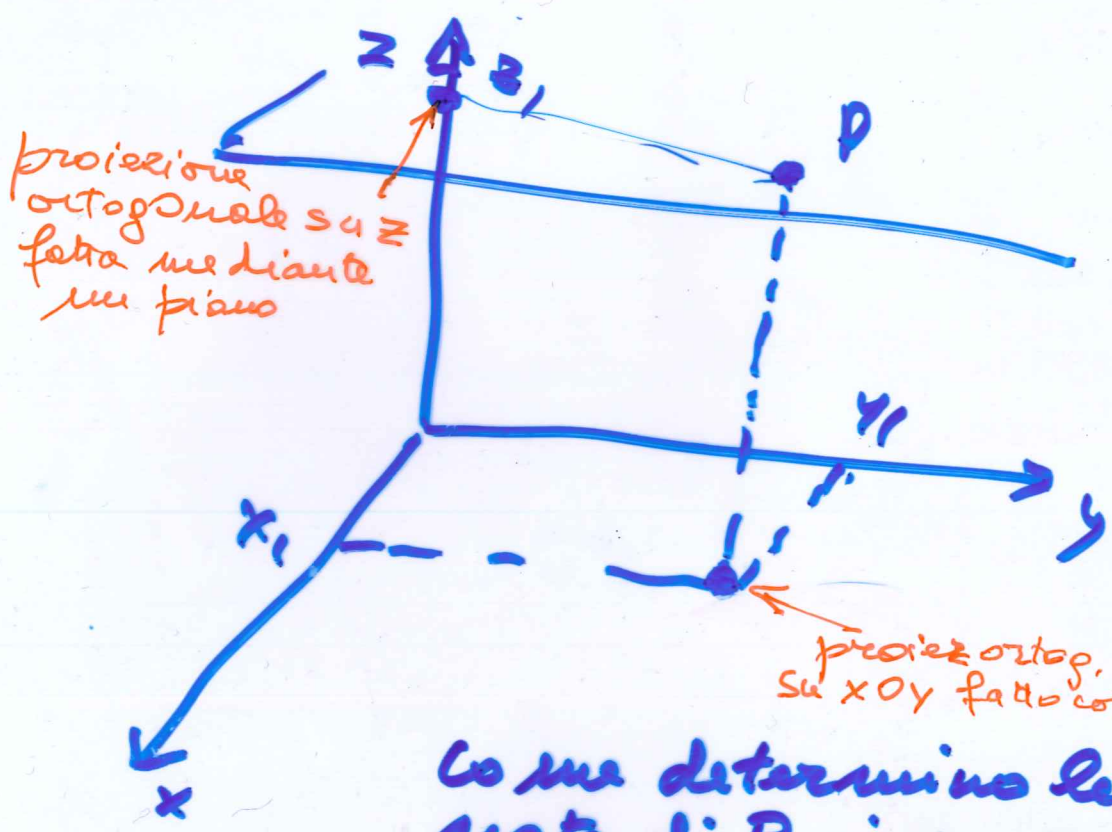 z z₁
P
proiezione
ortogonale su z
fatta mediante
un piano
y₁
x₁
y
proiez ortog.
su xOy fatto co
x
Come determino le